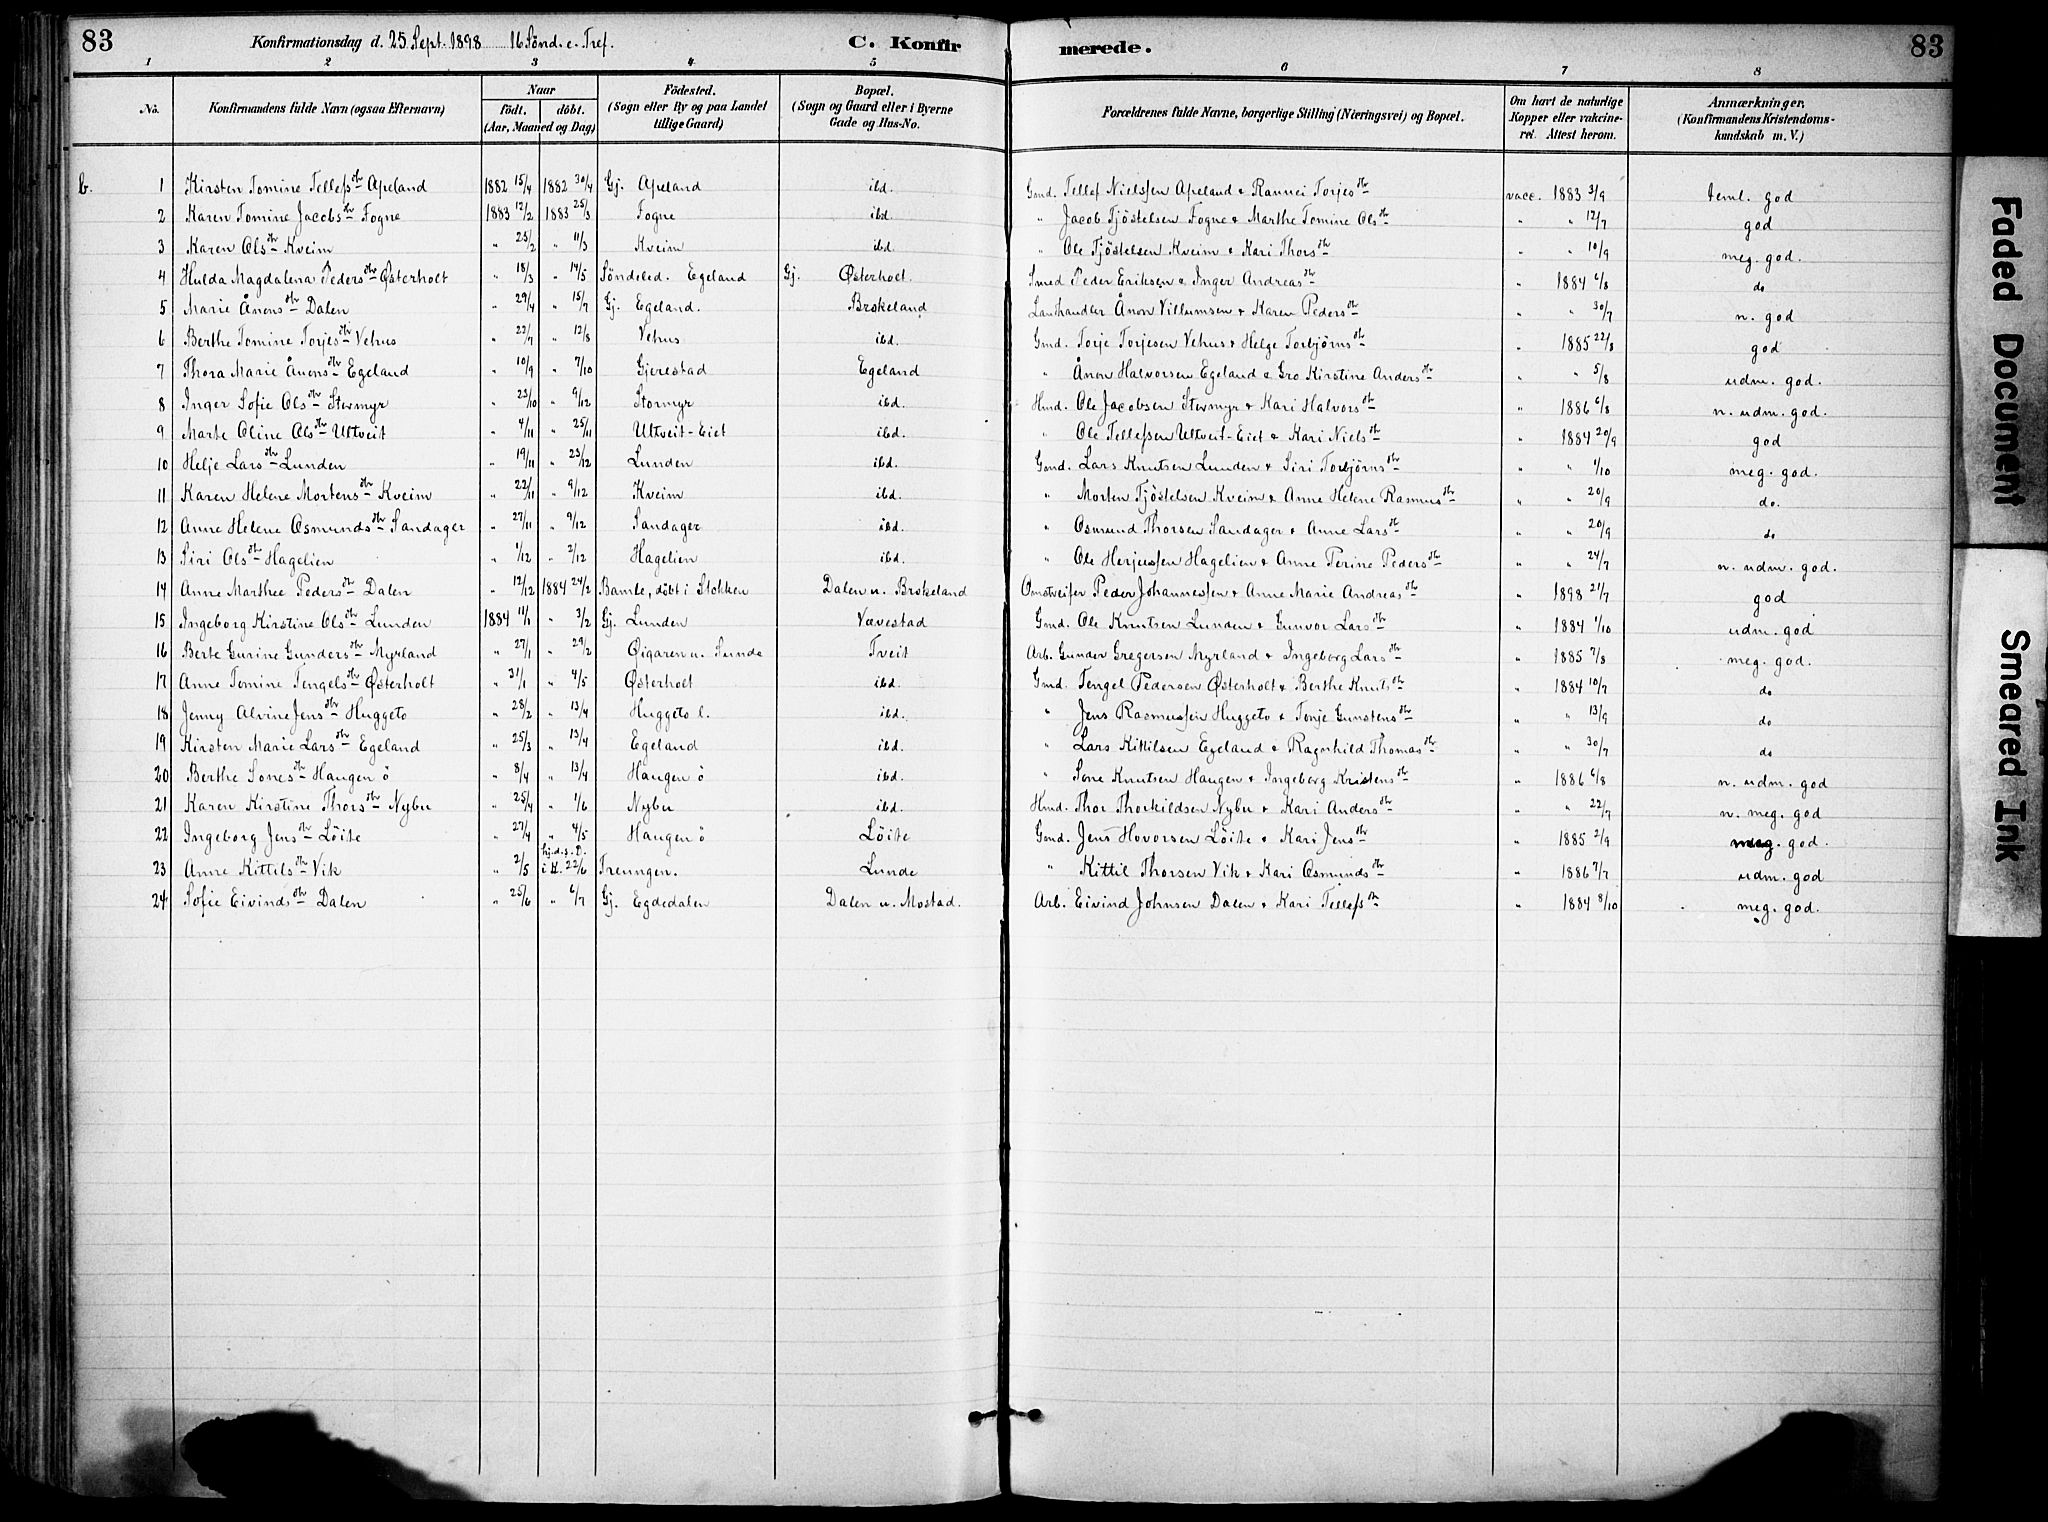 83 Konfirmationsdag d. 25 Sept. 1898 16 Sönd. e. Tref. C. Konfir merede. 83
1 2 3 4 5 6 7 8
No. Konfirmandens fulde Navn (ogsaa Efternavn) Naar födt. döbt. (Aar, Maaned og Dag) Födested. (Sogn eller By og paa Landet tillige Gaard) Bopæl. (Sogn og Gaard eller i Byerne Gade og Hus-No. Forældrenes fulde Navne, borgerlige Stilling (Næringsvei) og Bopæl. Om havt de naturlige Kopper eller vakcineret. Attest herom. Anmærkninger. (Konfirmandens Kristendomskundskab m. V.)
b. 1 Kirsten Tomine Tellefsdtr Apeland 1882 15/4 1882 30/4 Gj. Apeland ibd. Gmd. Tellef Nielssen Apeland & Rannei Torjesdtr vacc. 1883 3/9 teml. god
2 Karen Tomine Jacobsdtr Fogne 1883 12/2 1883 25/3 Fogne ibd. " Jacob Tjöstelsen Fogne & Marthe Tomine Olsdtr " " 12/7 god
3 Karen Olsdtr Kveim " 25/2 " 11/3 Kveim ibd. " Ole Tjöstelsen Kveim & Kari Thorsdtr " " 10/9 meg. god.
4 Hulda Magdalena Pedersdtr Østerholt " 18/3 " 14/5 Söndeled. Egeland Gj. Østerholt. Smed Peder Eriksen & Inger Andreasdtr " 1884 6/8 do
5 Marie Ånonsdtr Dalen " 29/4 " 15/7 Gj. Egeland. Brokeland Lanhandler Ånon Villumsen & Karen Pedersdtr " " 30/7 n. god
6 Berthe Tomine Torjesdtr Vehus " 22/7 " 12/8 Vehus ibd. Gmd. Torje Torjesen Vehus & Helge Torbjörnsdtr " 1885 22/8 god
7 Thora Marie Ånonsdtr Egeland " 10/9 " 7/10 Gjerestad Egeland " Ånon Halvorsen Egeland & Gro Kirstine Andersdtr " " 5/8 udm. god.
8 Inger Sofie Olsdtr Stormyr " 23/10 " 9/12 Stormyr ibd. Hmd. Ole Jacobsen Stormyr & Kari Halvorsdtr " 1886 6/8 n. udm. god.
9 Marte Oline Olsdtr Ultveit " 4/11 " 25/11 Ultveit-Eiet ibd. " Ole Tellefsen Ultveit-Eiet & Kari Nielsdtr " 1884 20/9 god
10 Helje Larsdtr Lunden " 19/11 " 23/12 Lunden ibd. Gmd. Lars Knutsen Lunden & Siri Torbjörnsdtr " " 1/10 meg. god.
11 Karen Helene Mortensdtr Kveim " 22/11 " 9/12 Kveim ibd. " Morten Tjöstelsen Kveim & Anne Helene Rasmusdtr " " 20/9 do.
12 Anne Helene Osmundsdtr Sandager " 27/11 " 9/12 Sandager ibd. " Osmund Thorsen Sandager & Anne Larsdtr " " 20/9 do
13 Siri Olsdtr Hagelien " 1/12 " 2/12 Hagelien ibd. " Ole Herjussen Hagelien & Anne Terine Pedersdtr " " 24/7 n. udm. god.
14 Anne Marthee Pedersdtr Dalen " 12/12 1884 24/2 Bamle, döbt i Stokken Dalen u. Brokeland Omstreifer Peder Johannessen & Anne Marie Andreasdtr " 1898 21/7 god
15 Ingeborg Kirstine Olsdtr Lunden 1884 11/1 " 3/2 Gj. Lunden Vævestad Gmd. Ole Knutsen Lunden & Gunvor Larsdtr " 1884 1/10 udm. god
16 Berte Gurine Gundersdtr Myrland " 27/1 " 29/2 Øigaren u. Sunde Tveit Arb. Gunder Gregersen Myrland & Ingeborg Larsdtr " 1885 7/8 meg. god.
17 Anne Tomine Tengelsdtr Østerholt " 31/1 " 4/5 Østerholt ibd. Gmd. Tengel Pedersen Østerholt & Berthe Knutsdtr " 1884 10/7 do
18 Jenny Alvine Jensdtr Huggeto " 28/2 " 13/4 Huggeto l. ibd. " Jens Rasmussen Huggeto & Tonje Gunstensdtr " " 13/9 do
19 Kirsten Marie Larsdtr Egeland " 25/3 " 13/4 Egeland ibd. " Lars Kittilsen Egeland & Ragnhild Thomasdtr " " 30/7 do
20 Berthe Sonesdtr Haugen ö " 8/4 " 13/4 Haugen ö ibd. " Sone Knutsen Haugen & Ingeborg Kristensdtr " 1886 6/8 n. udm. god
21 Karen Kirstine Thorsdtr Nybu " 25/4 " 1/6 Nybu ibd. Hmd. Thor Thorkildsen Nybu & Kari Andersdtr " " 22/7 n. meg. god
22 Ingeborg Jensdtr Löite " 27/4 " 4/5 Haugen ö Löite Gmd. Jens Hovorsen Löite & Kari Jensdtr " 1885 2/9 meg. god.
23 Anne Kittilsdtr Vik " 2/5 hj.d.s.D. i K. 22/6 Treungen. Lunde " Kittil Thorsen Vik & Kari Osmundsdtr " 1886 7/7 udm. god
24 Sofie Eivindsdtr Dalen " 25/6 " 6/7 Gj. Egdedalen Dalen u. Mostad. Arb. Eivind Johnsen Dalen & Kari Tellefsdtr " 1884 8/10 meg. god.
Faded Document
Smeared Ink